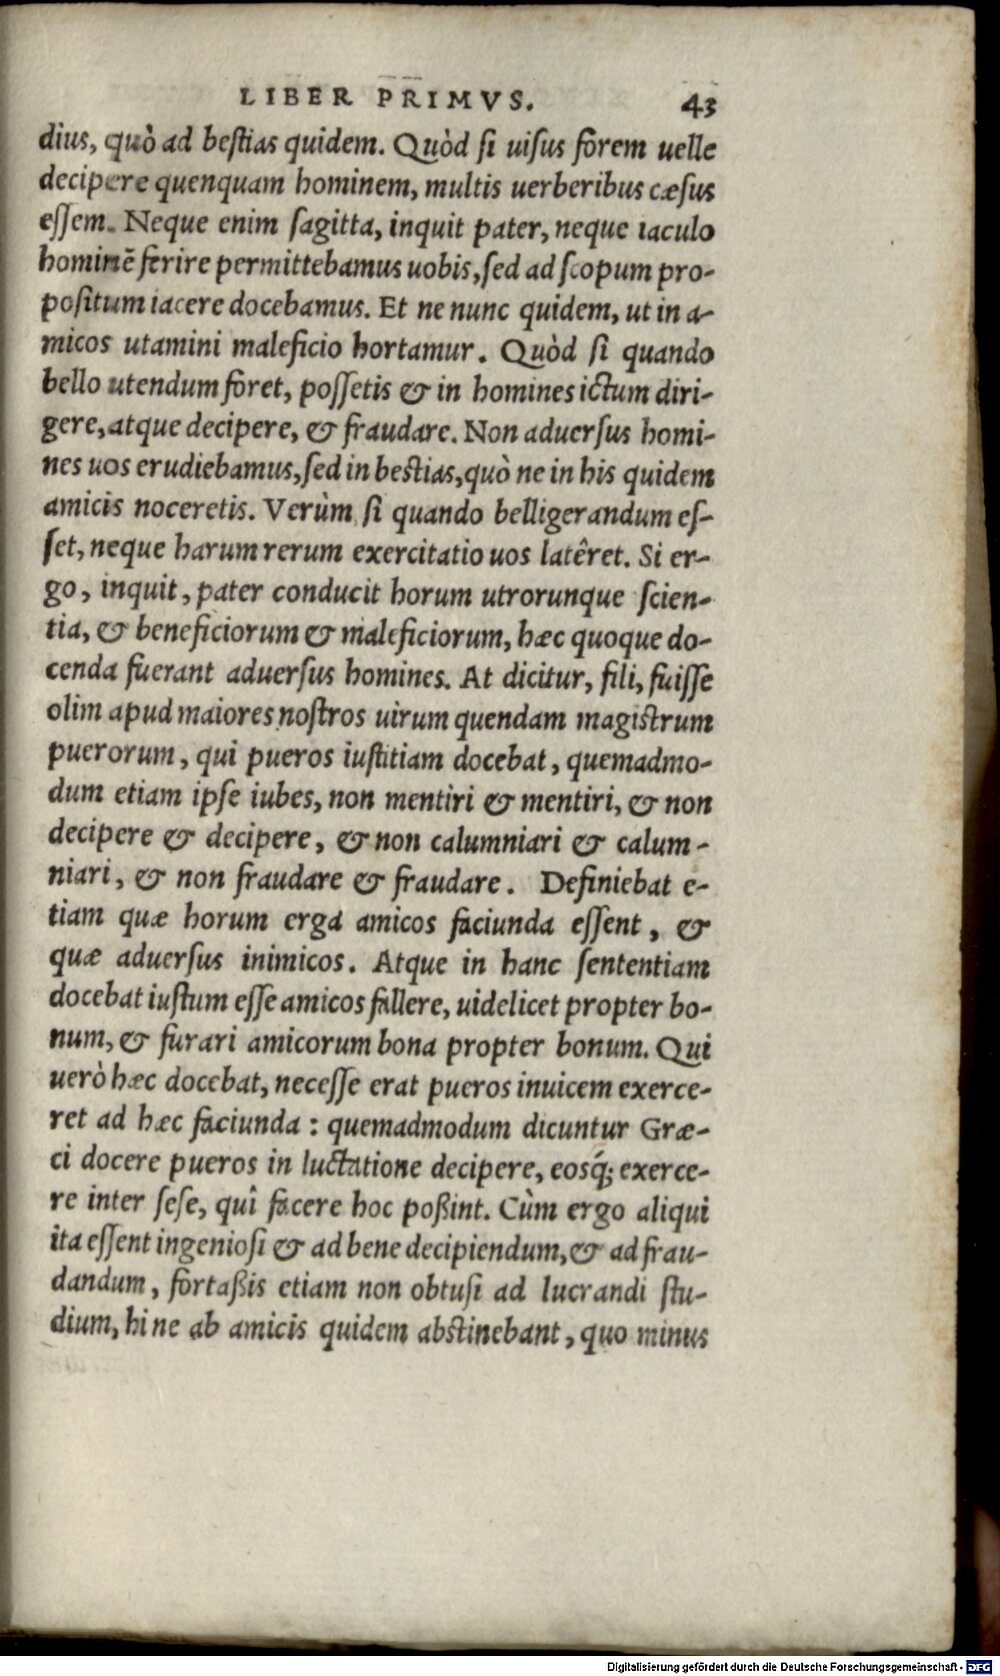 LIBER PRIMVS. 43
dius, quò ad beſtias quidem. Quòd ſi uiſus forem uelle
decipere quenquam hominem, multis uerberibus cæſus
eſſem. Neque enim ſagitta, inquit pater, neque iaculo
hominē ferire permittebamus uobis, ſed ad ſcopum pro-
poſitum iacere docebamus. Et ne nunc quidem, ut in a-
micos utamini maleficio hortamur. Quòd ſi quando
bello utendum foret, poſſetis & in homines ictum diri-
gere, atque decipere, & fraudare. Non aduerſus homi-
nes uos erudiebamus, ſed in beſtias, quò ne in his quidem
amicis noceretis. Verùm ſi quando belligerandum eſ-
ſet, neque harum rerum exercitatio uos latêret. Si er-
go, inquit, pater conducit horum utrorunque ſcien-
tia, & beneficiorum & maleficiorum, hæc quoque do-
cenda fuerant aduerſus homines. At dicitur, fili, fuiſſe
olim apud maiores noſtros uirum quendam magiſtrum
puerorum, qui pueros iuſtitiam docebat, quemadmo-
dum etiam ipſe iubes, non mentiri & mentiri, & non
decipere & decipere, & non calumniari & calum-
niari, & non fraudare & fraudare. Definiebat e-
tiam quæ horum erga amicos faciunda eſſent, &
quæ aduerſus inimicos. Atque in hanc ſententiam
docebat iuſtum eſſe amicos fallere, uidelicet propter bo-
num, & furari amicorum bona propter bonum. Qui
uerò hæc docebat, neceſſe erat pueros inuicem exerce-
ret ad hæc faciunda: quemadmodum dicuntur Græ-
ci docere pueros in luctatione decipere, eosq́; exerce-
re inter ſeſe, quî facere hoc poßint. Cùm ergo aliqui
ita eſſent ingenioſi & ad bene decipiendum, & ad frau-
dandum, fortaßis etiam non obtuſi ad lucrandi ſtu-
dium, hi ne ab amicis quidem abſtinebant, quo minus
Digitalisierung gefördert durch die Deutsche Forschungsgemeinschaft - DFG